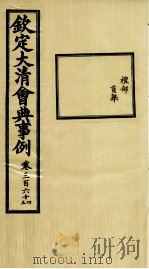 禮部
貢舉
欽定大清會典事例 卷三百六十四五